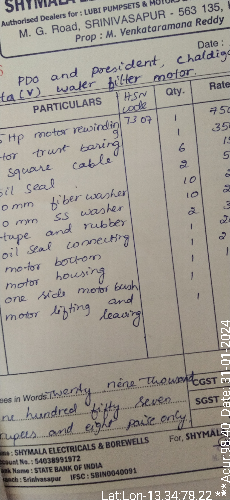 SHYMALA
Authorised Dealers for : LUBI PUMPSETS & MOTORS
M. G. Road, SRINIVASAPUR - 563 135,
Prop : M. Venkataramana Reddy
Date :
PDO and president, Chaldig
ta(V) water filter motor
PARTICULARS HSN code Qty. Rate
Hp motor rewinding 7307 1 750
tor trust baring 1 350
square cable 6
oil seal 2
0 mm fiber washer 10
0 mm SS washer 10
tape and rubber 2
oil seal connecting 1
motor bottom 1
motor housing 1
one side motor bush 1
motor lifting and leaving 1
ees in Words Twenty nine Thousand
one hundred fifty seven
rupees and eight paise only
CGST
SGST
: SHYMALA ELECTRICALS & BOREWELLS
count No. : 54038991972
Bank Name : STATE BANK OF INDIA
Branch : Srinivasapur IFSC : SBIN0040091
For, SHYMAL
Lat:Lon-13.34,78.22
Acu:98.40 Date:31-01-2024